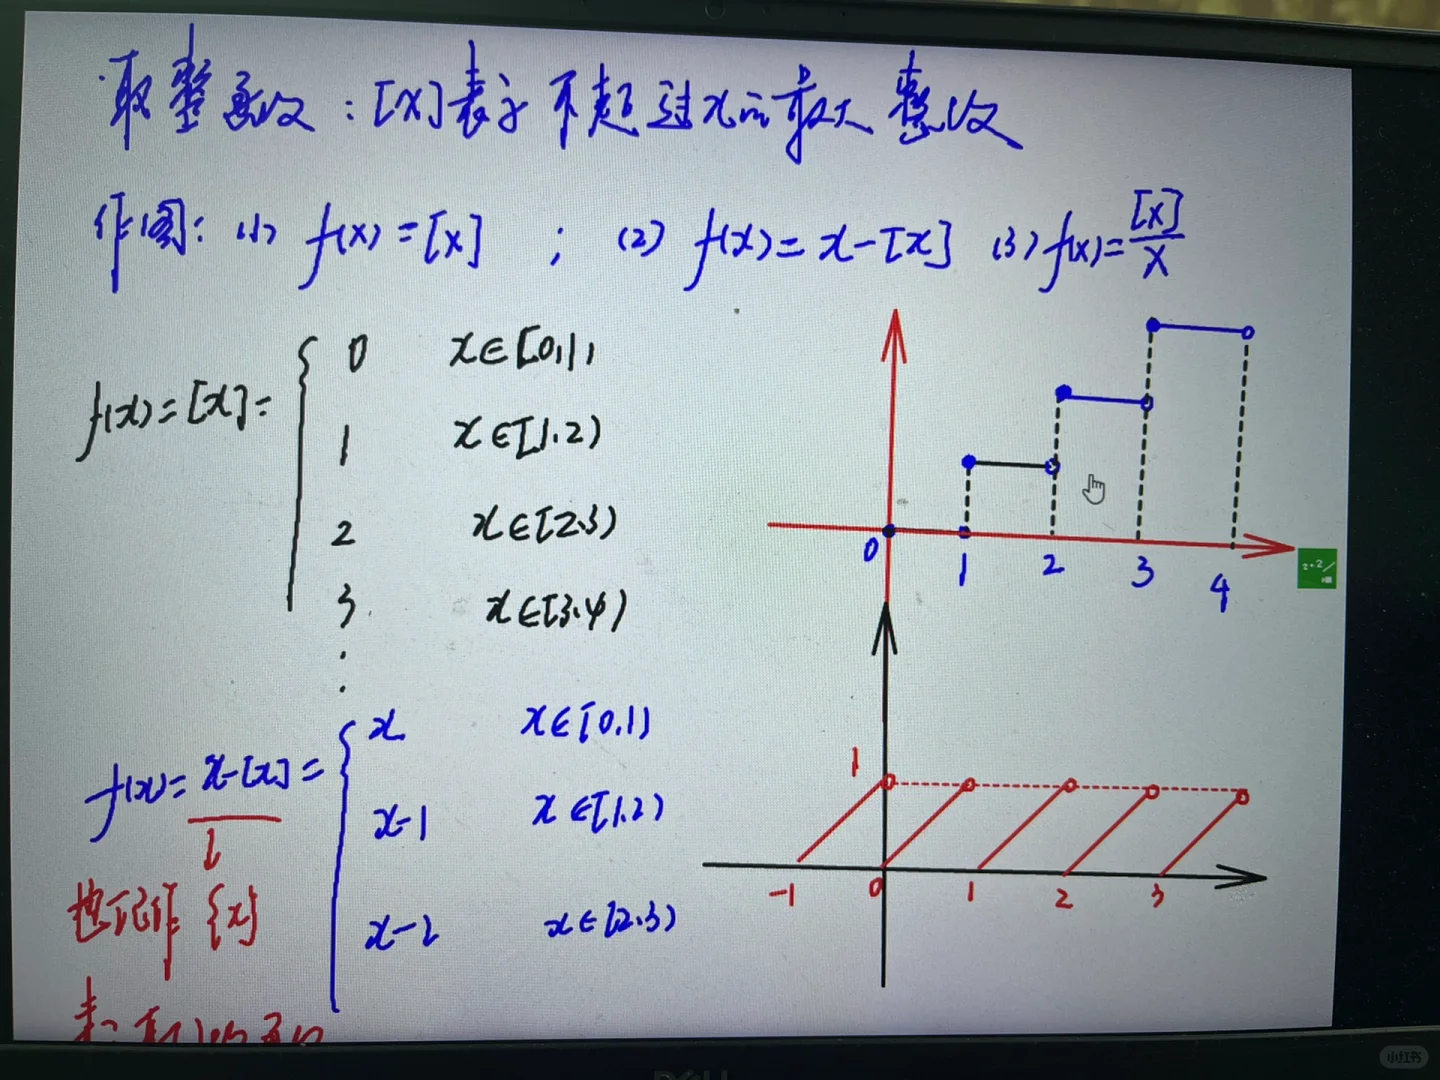 取整函数：[x]表示不超过x的最大整数
作图：(1) f(x)=[x] ； (2) f(x)=x-[x] (3) f(x)=[x]/x
f(x)=[x]=
0 x∈[0,1)
1 x∈[1.2)
2 x∈[2.3)
3 x∈[3.4)
0 1 2 3 4
f(x)=x-[x]=
x x∈[0.1)
x-1 x∈[1.2)
x-2 x∈[2.3)
也记作 {x}
1
-1 0 1 2 3
小红书